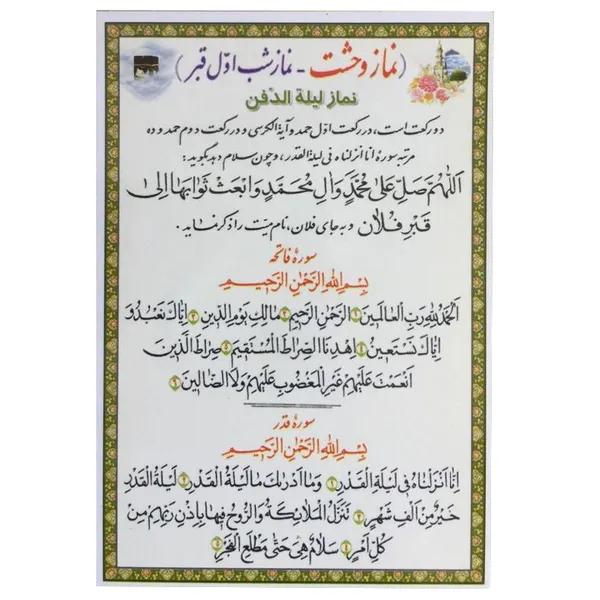 (نماز وحشت - نماز شب اوّل قبر)
نماز لیلة الدّفن
دو رکعت است، در رکعت اوّل حمد و آیة الکرسی و در رکعت دوم حمد و ده
مرتبه سوره انا انزلناه فی لیلة القدر، و چون سلام دهد بگوید:
اَللّهُمَّ صَلِّ عَلیٰ مُحَمَّدٍ وَ الِ مُحَمَّدٍ وَ ابْعَثْ ثَوابَها اِلیٰ
قَبْرِ فُلانٍ و به جای فلان، نام میّت را ذکر فرماید.
سورهٔ فاتحه
بِسْمِ اللهِ الرَّحْمٰنِ الرَّحیمِ
اَلْحَمْدُ لِلّهِ رَبِّ الْعالَمینَ ﴿۱﴾ اَلرَّحْمٰنِ الرَّحیمِ ﴿۲﴾ مالِكِ یَوْمِ الدّینِ ﴿۳﴾ اِیّاكَ نَعْبُدُ وَ
اِیّاكَ نَسْتَعینُ ﴿۴﴾ اِهْدِنَا الصِّراطَ الْمُسْتَقیمَ ﴿۵﴾ صِراطَ الَّذینَ
اَنْعَمْتَ عَلَیْهِمْ غَیْرِ الْمَغْضُوبِ عَلَیْهِمْ وَلَا الضّالّینَ ﴿۶﴾
سورهٔ قدر
بِسْمِ اللهِ الرَّحْمٰنِ الرَّحیمِ
اِنّا اَنْزَلْناهُ فی لَیْلَةِ الْقَدْرِ ﴿۱﴾ وَ ما اَدْریٰكَ ما لَیْلَةُ الْقَدْرِ ﴿۲﴾ لَیْلَةُ الْقَدْرِ
خَیْرٌ مِنْ اَلْفِ شَهْرٍ ﴿۳﴾ تَنَزَّلُ الْمَلائِكَةُ وَ الرُّوحُ فیها بِاِذْنِ رَبِّهِمْ مِنْ
كُلِّ اَمْرٍ ﴿۴﴾ سَلامٌ هِیَ حَتّیٰ مَطْلَعِ الْفَجْرِ ﴿۵﴾